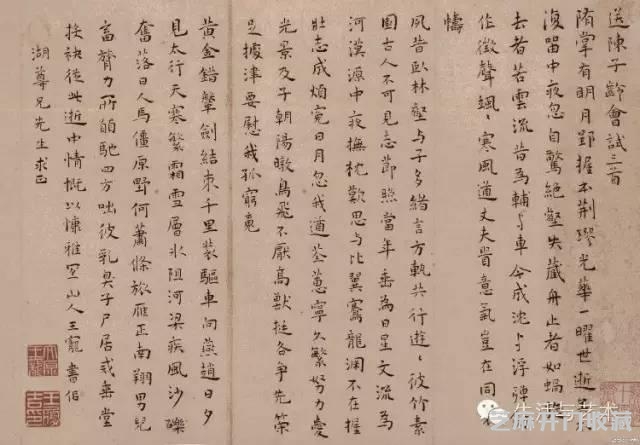 送陳子齡會試三首
隋掌有明月郢握本荆璆光華一曜世逝
復留中夜忽自驚絕壑失藏舟止者如蝸
去者若雲流昔為輔與車今成沈與浮彈
作徵聲颯〻寒風遒丈夫貴意氣豈在同
幬
夙昔臥林壑与子多緒言方軌共行遊〻彼竹素
園古人不可見志節照當年垂為日星文流為
河漢源中夜撫枕歎思与比翼騫龍淵不在握
壯志成煩寃日月忽我遒荃蕙寧久繁努力愛
光景及子朝陽暾鳥飛不厭高獸挺各爭先策
足據津要慰我孤窮
黃金錯鞶劍結束千里裝驅車向燕趙日夕
見太行天寒繁霜雪層冰阻河梁疾風沙礫
奮落日人馬僵原野何蕭條旅雁正南翔男兒
奮膂力所願馳四方咄彼乳臭子尸居戒垂堂
接袂從此逝中情慨以慷雅宜山人王寵書似
湖尊兄先生求正
生活与艺术
芝麻开门收藏